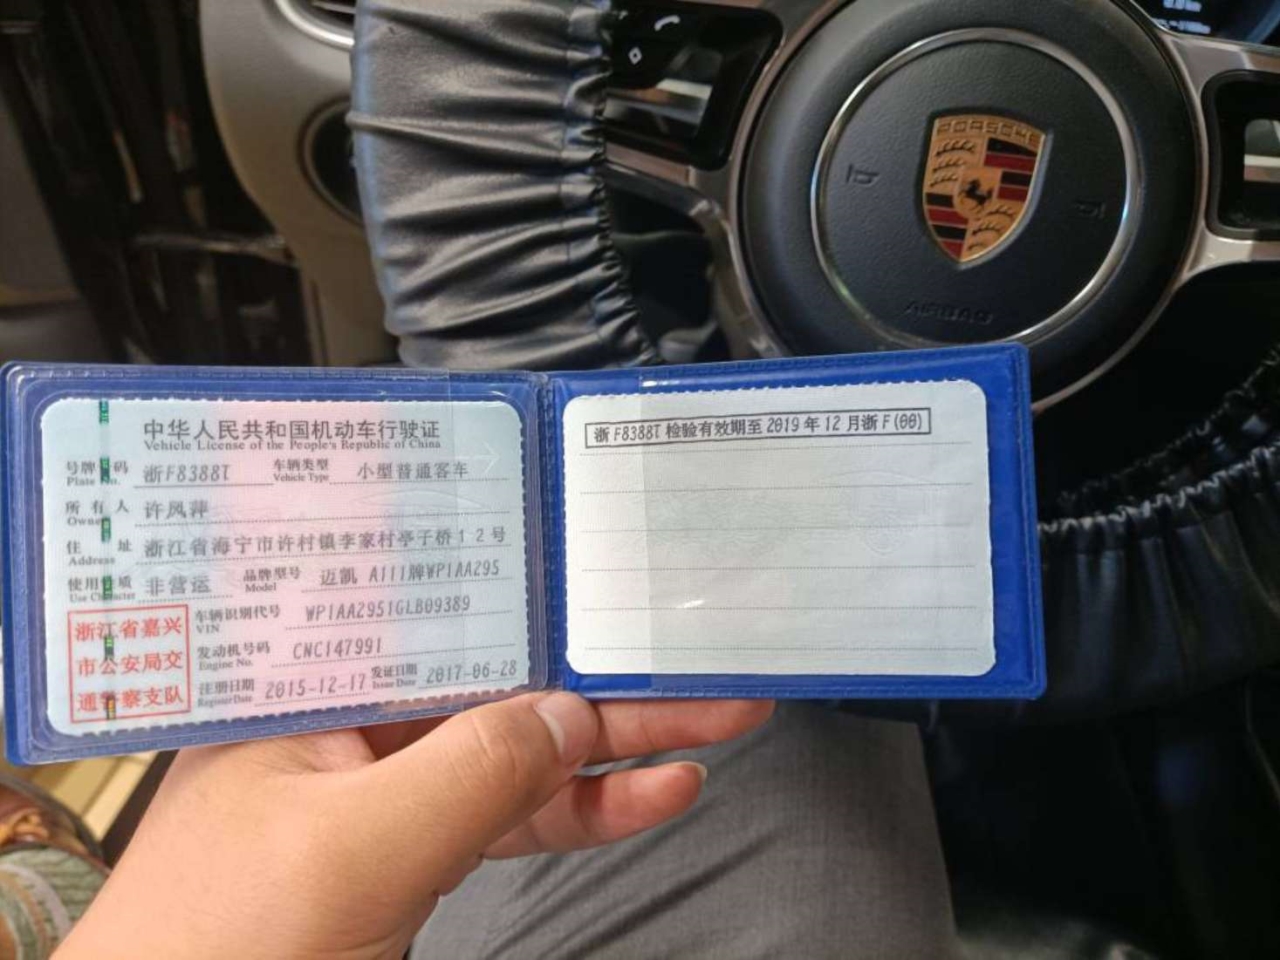 PORSCHE
AIRBAG
中华人民共和国机动车行驶证
Vehicle License of the People's Republic of China
号牌号码 浙F8388T 车辆类型 小型普通客车
Plate No. Vehicle Type
所有人 许凤萍
Owner
住址 浙江省海宁市许村镇李家村亭子桥12号
Address
使用性质 非营运 品牌型号 迈凯 A111牌WP1AA295
Use Character Model
浙江省嘉兴
市公安局交
通警察支队
车辆识别代号 WP1AA2951GLB09389
VIN
发动机号码 CNC147991
Engine No.
注册日期 2015-12-17 发证日期 2017-06-28
Register Date Issue Date
浙F8388T 检验有效期至2019年12月浙F(00)